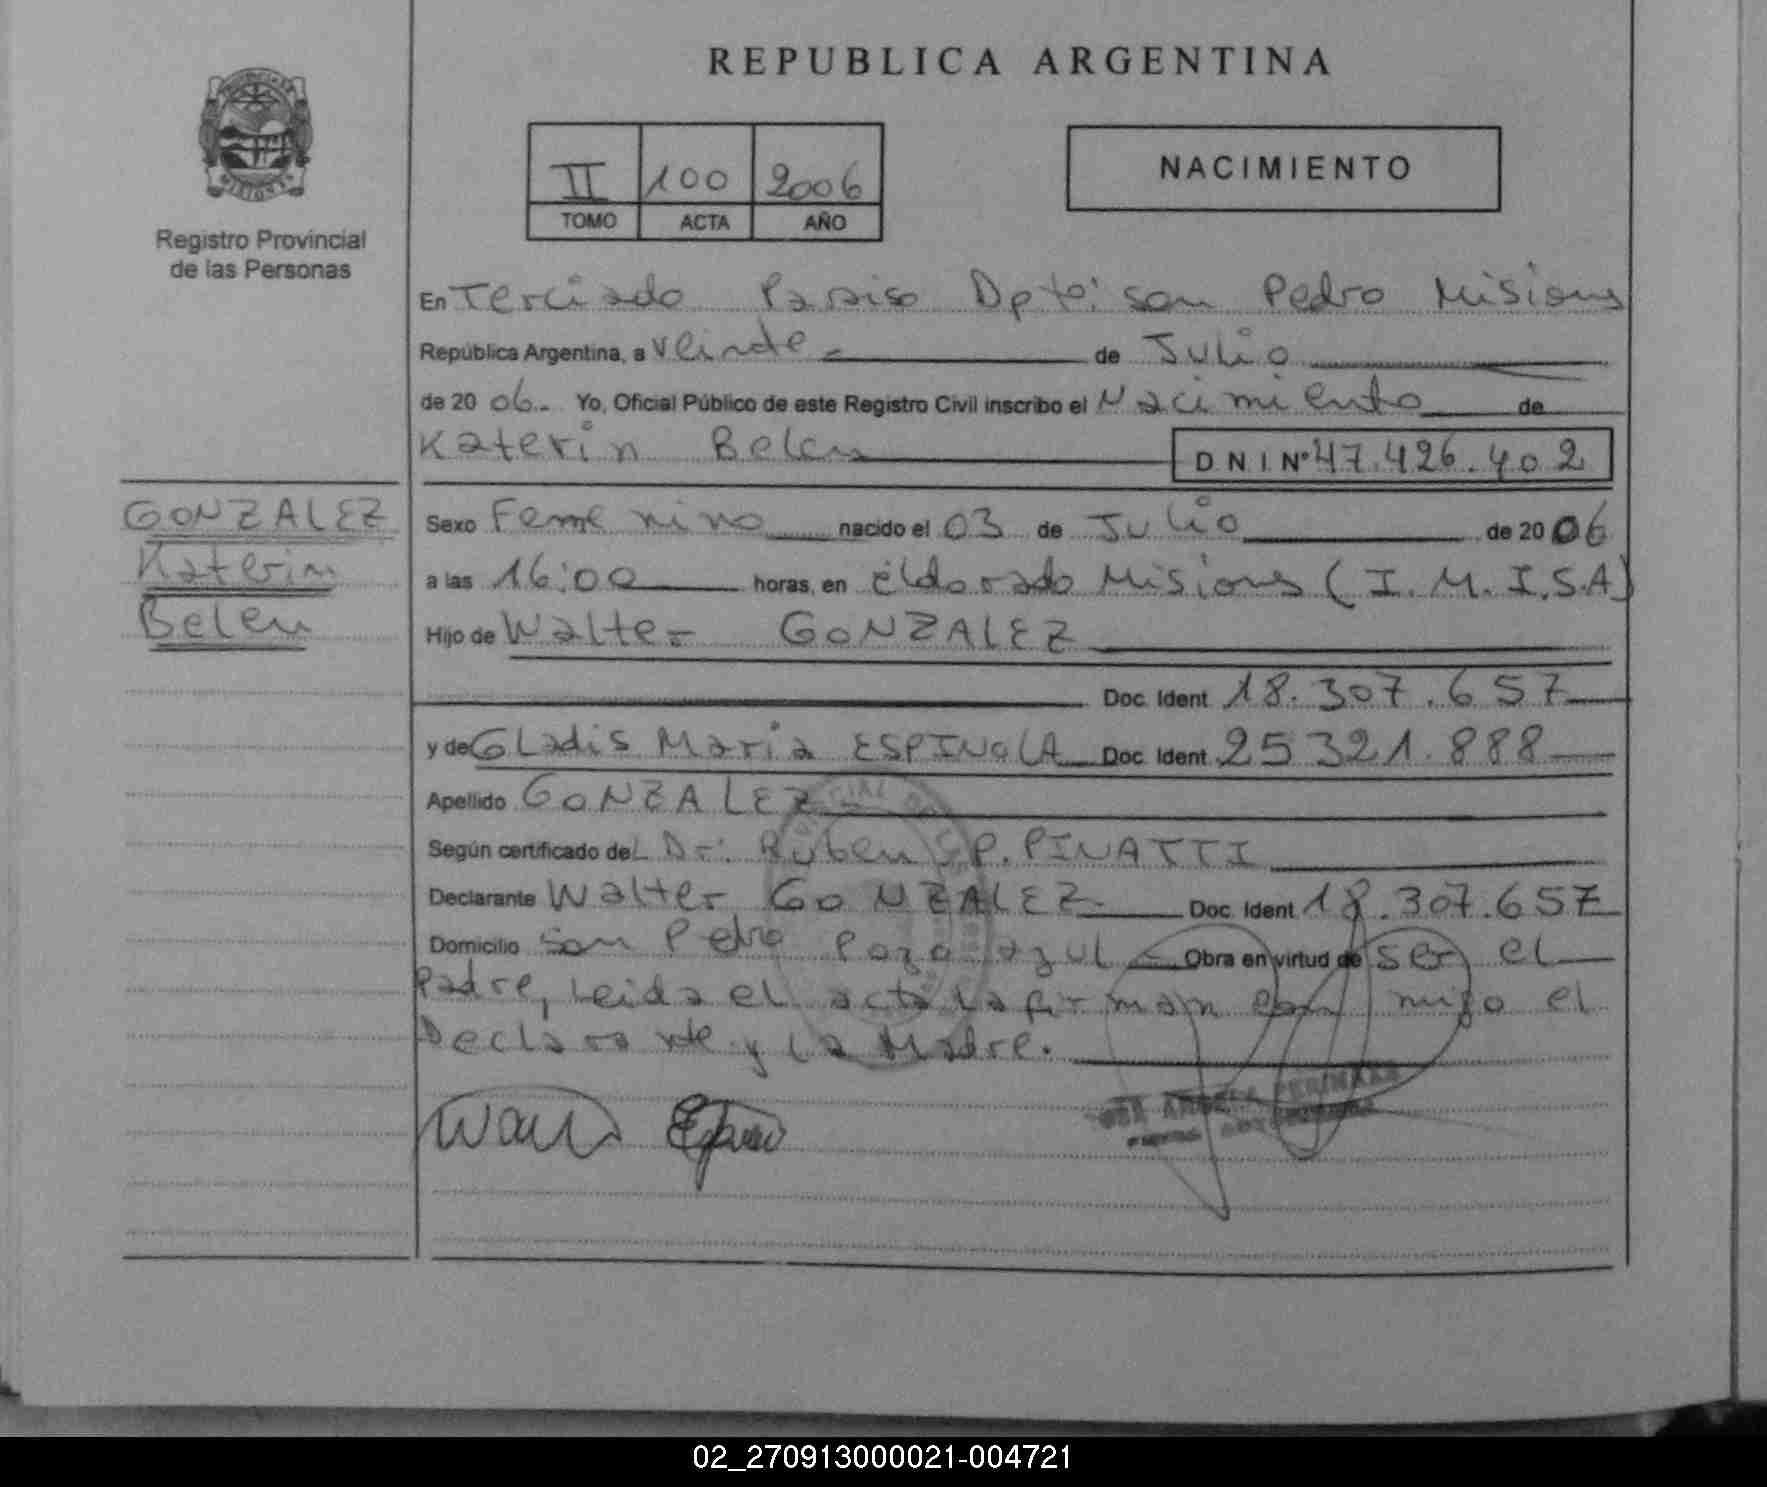 REPUBLICA ARGENTINA
II 100 2006
TOMO ACTA AÑO
NACIMIENTO
Registro Provincial
de las Personas
En Terciado Paraiso Dpto: san Pedro Misiones
República Argentina, a Veinte de Julio
de 20 06. Yo, Oficial Público de este Registro Civil inscribo el Nacimiento de
Katerin Belen D N I Nº 47.426.402
GONZALEZ
Katerin
Belen
Sexo Femenino nacido el 03 de Julio de 20 06
a las 16:00 horas, en Eldorado Misiones (I.M.I.S.A)
Hijo de Walter GONZALEZ
Doc. Ident. 18.307.657
y de Gladis Maria ESPINOLA Doc. Ident. 25 321.888
Apellido GONZALEZ
Según certificado del Dr: Ruben P. PINATTI
Declarante Walter GONZALEZ Doc. Ident. 18.307.657
Domicilio San Pedro Pozo azul Obra en virtud de ser el
Padre, Leida el acta La firman con migo el
Declarante y La Madre.
02_270913000021-004721